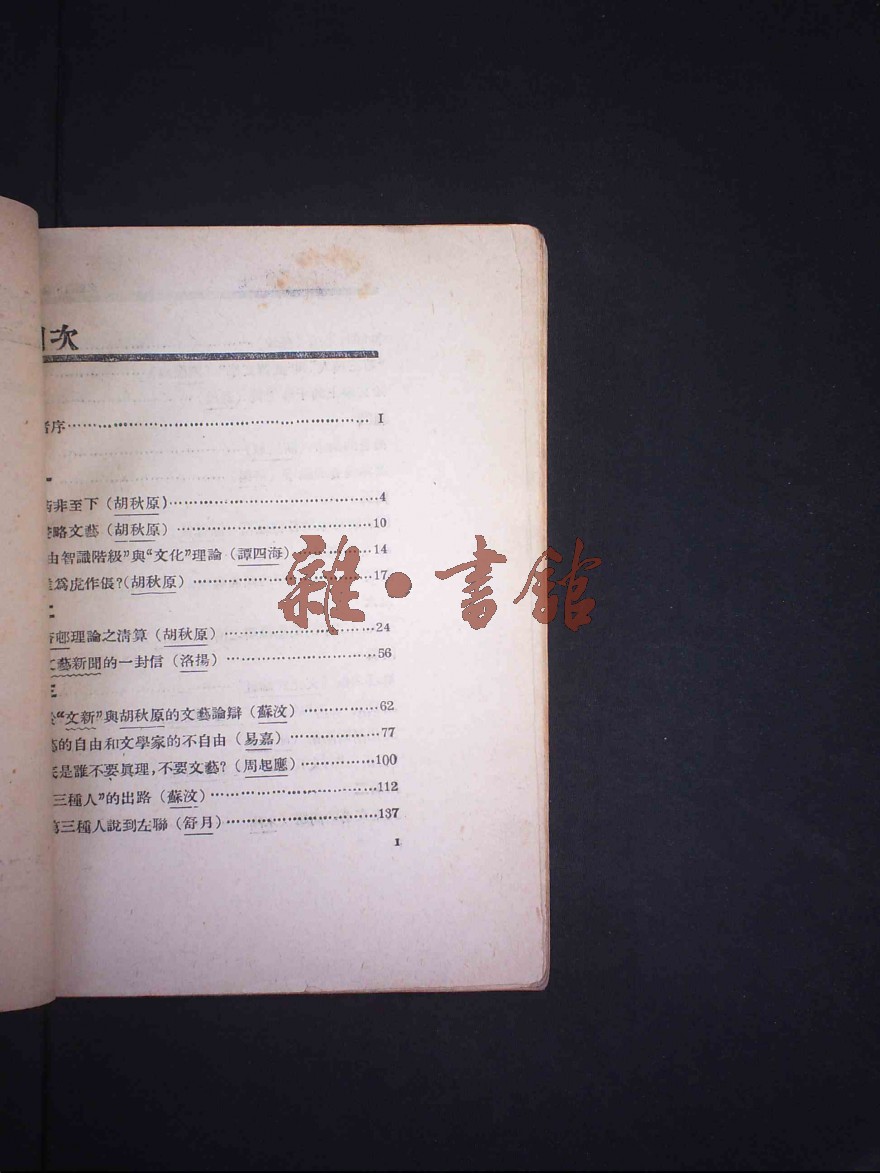 次
序…………………………………………… I
非至下(胡秋原)……………………………4
略文藝(胡秋原)……………………………10
由智識階級”與“文化”理論(譚四海)……………14
爲虎作倀?(胡秋原)……………………………17
理論之清算(胡秋原)……………………24
藝新聞的一封信(洛揚)……………………56
“文新”與胡秋原的文藝論辯(蘇汶)……………62
的自由和文學家的不自由(易嘉)……………77
是誰不要眞理,不要文藝?(周起應)…………100
三種人”的出路(蘇汶)……………………112
第三種人說到左聯(舒月)……………………137
1
雜·書館